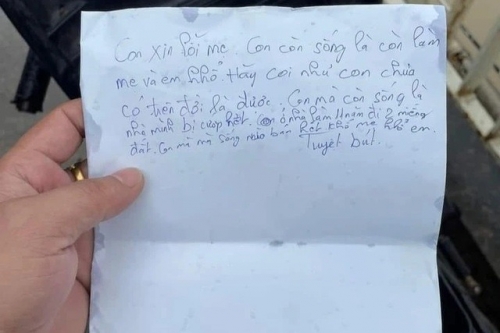 Con xin lỗi mẹ. Con còn sống là còn làm
mẹ và em khổ. Hãy coi như con chưa
có trên đời là được. Con mà còn sống là
nhà mình bị cướp hết. Con ở nhà giam 11 năm đi 2 miếng
đất. Con mà mà sống nữa bán hết khổ mẹ khổ em.
Tuyệt bút.